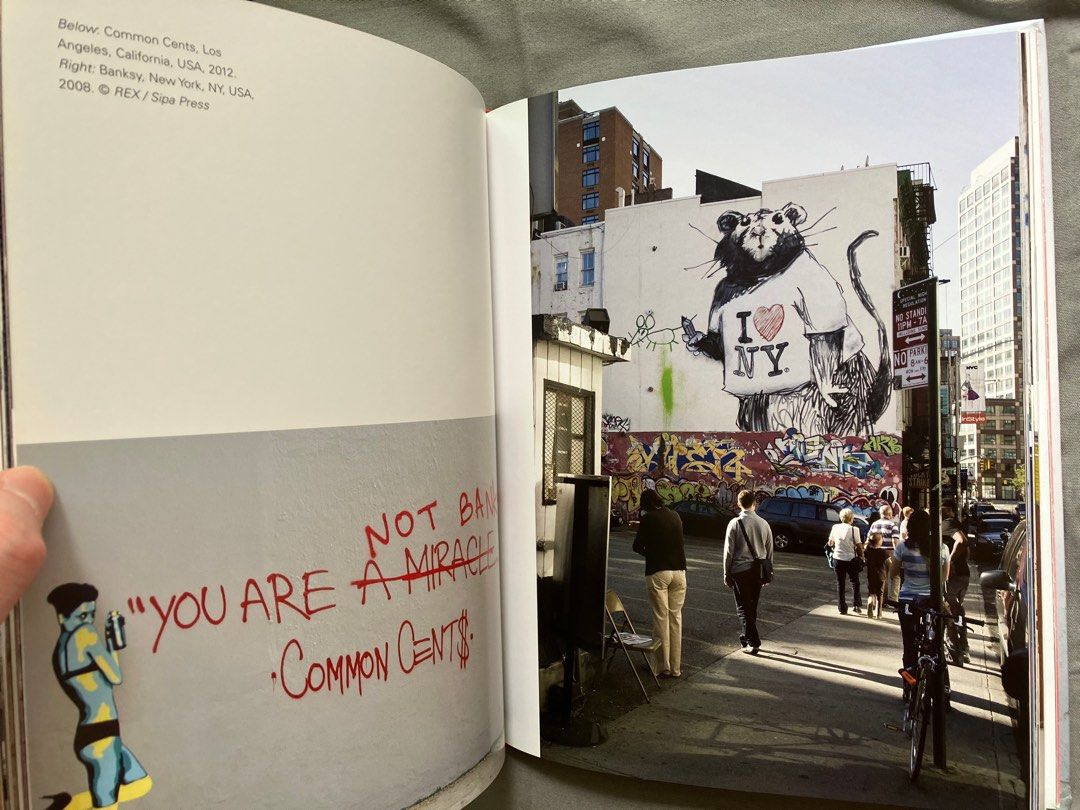 Below: Common Cents, Los
Angeles, California, USA, 2012.
Right: Banksy, New York, NY, USA,
2008. © REX / Sipa Press
NOT BAN
"YOU ARE A MIRACLE
·COMMON CENT$·
I ♥
NY.
SPECIAL NIGHT
REGULATION
NO STANDI
11PM - 7A
NO PARKI
8AM-6
NYC
InStyle